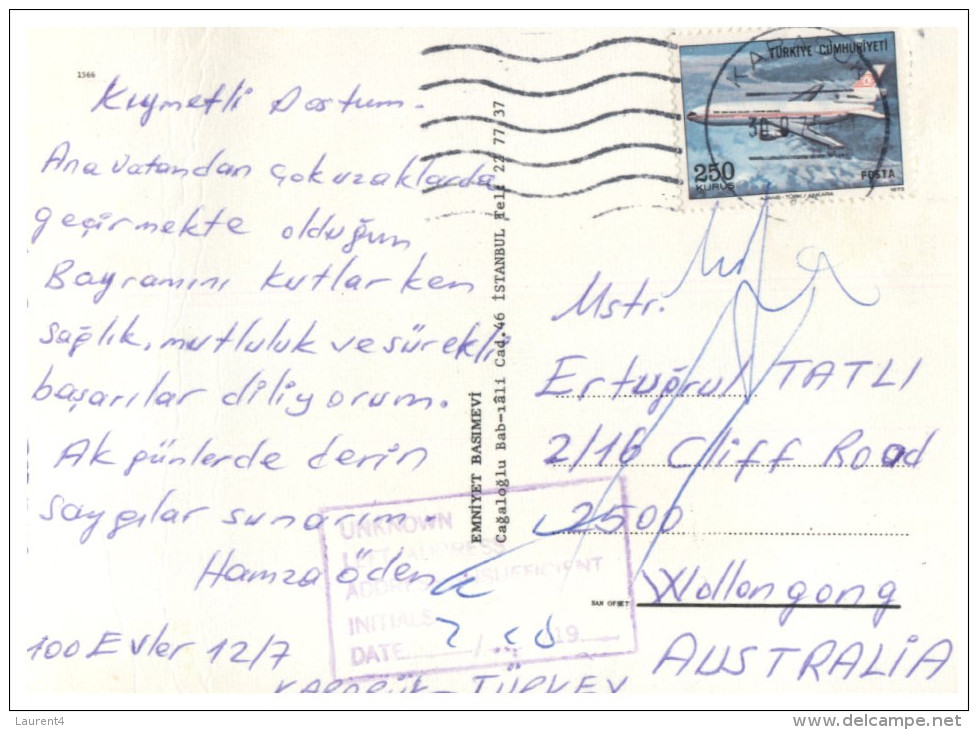 1566
Kıymetli Dostum.
Ana vatandan çok uzaklarda
geçirmekte olduğun
Bayramını kutlarken
sağlık, mutluluk ve sürekli
başarılar diliyorum.
Ak günlerde derin
saygılar sunarım.
Hamza Öden
100 Evler 12/7
KARABÜK - TÜRKEY
EMNİYET BASIMEVİ
Cağaloğlu Bab-ıâli Cad.46 İSTANBUL Tel: 22 77 37
TÜRKİYE CUMHURİYETİ
250
KURUŞ
POSTA
1973
KARABÜK
Mstr.
Ertuğrul TATLI
2/16 Cliff Road
2500
Wollongong
AUSTRALIA
SAN OFSET
UNKNOWN
LEFT ADDRESS
ADDRESS INSUFFICIENT
INITIALS
DATE / 19
Laurent4
www.delcampe.net